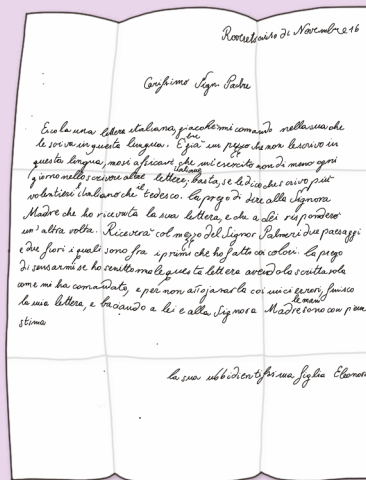 Roveretswiss di Novembre 16
Carissimo Sign. Padre
Ecola una lettera italiana, giacche mi comandò nella sua che
le scriva in questa lingua. È già un pezzo che non le scrivo in
questa lingua, ma si assicuri che mi esercito non di meno ogni
giorno nello scrivere altre lettere italiane, basta, se le dico che scrivo più
volentieri l'italiano che il tedesco. la prego di dire alla Signora
Madre che ho ricevuta la sua lettera, e che a lei risponderò
un'altra volta. Riceverà col mezzo del Signor Palmeri due paesaggi
e due fiori i quali sono fra i primi che ho fatto coi colori. la prego
di scusarmi se ho scritto male questa lettera avendola scritta sola
come mi ha comandato, e per non annojarla coi miei errori, finisco
la mia lettera, e baciando a lei e alla Signora Madre le mani sono con piena
stima
la sua ubbidientissima figlia Eleonora